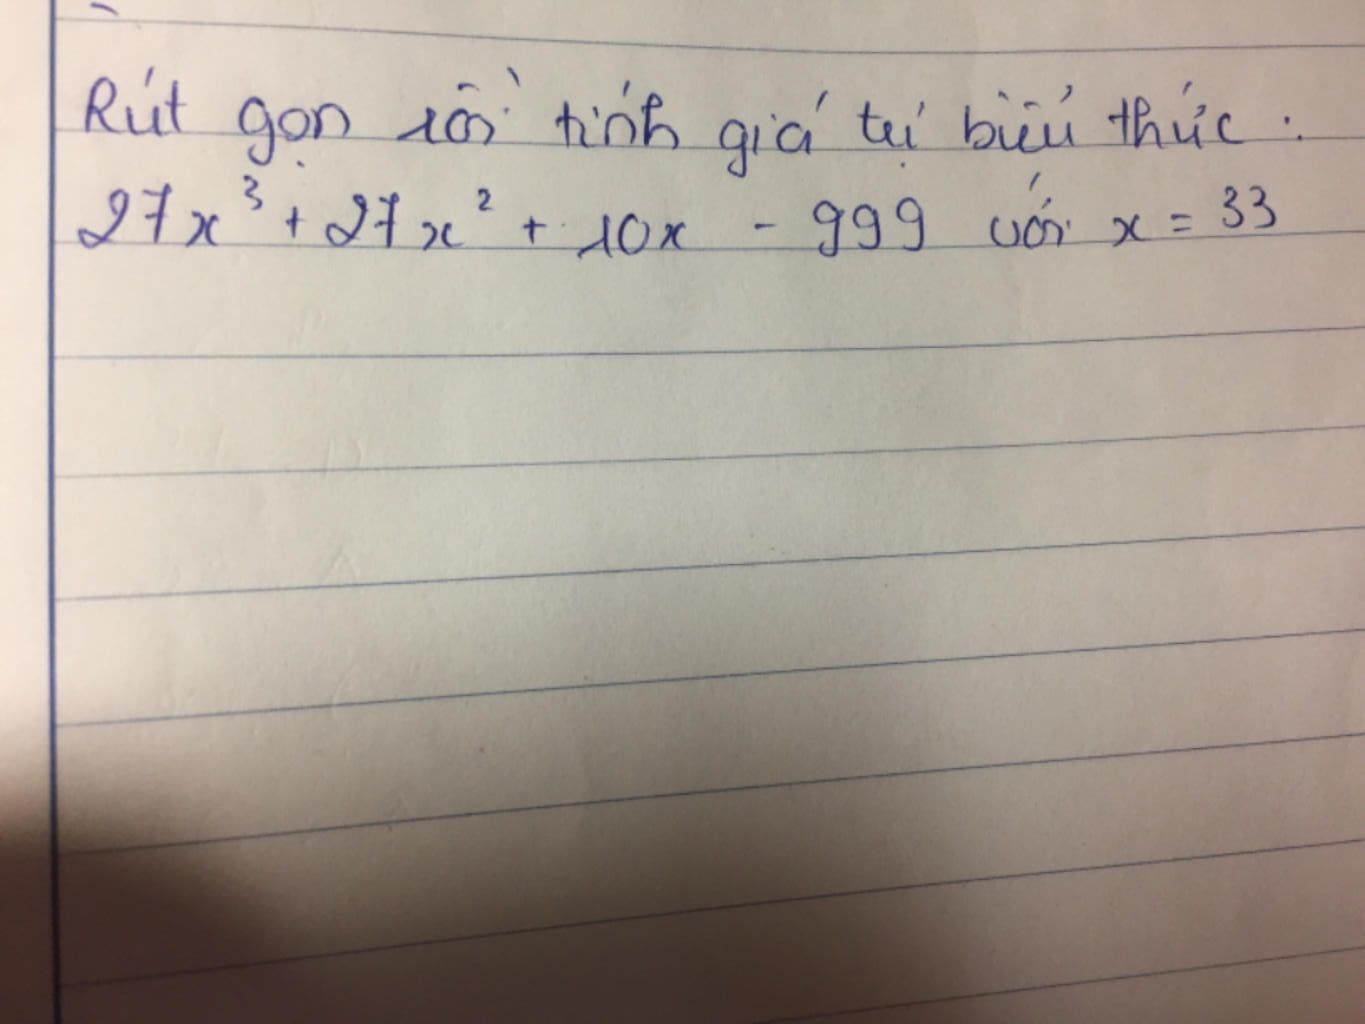 Rút gọn rồi tính giá trị biểu thức :
27x³ + 27x² + 10x - 999 với x = 33